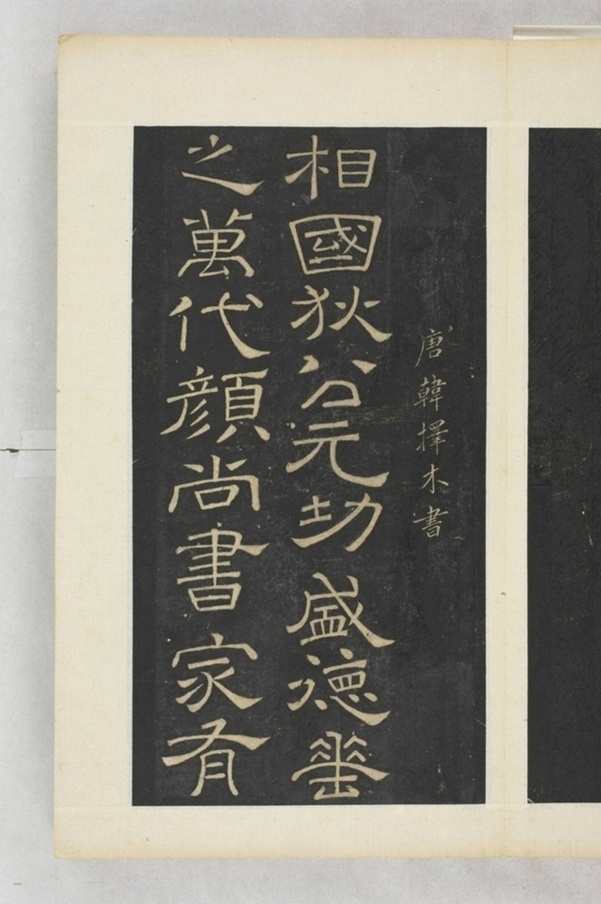 唐韓擇木書
相國狄公元功盛德垂
之萬代顏尚書家有